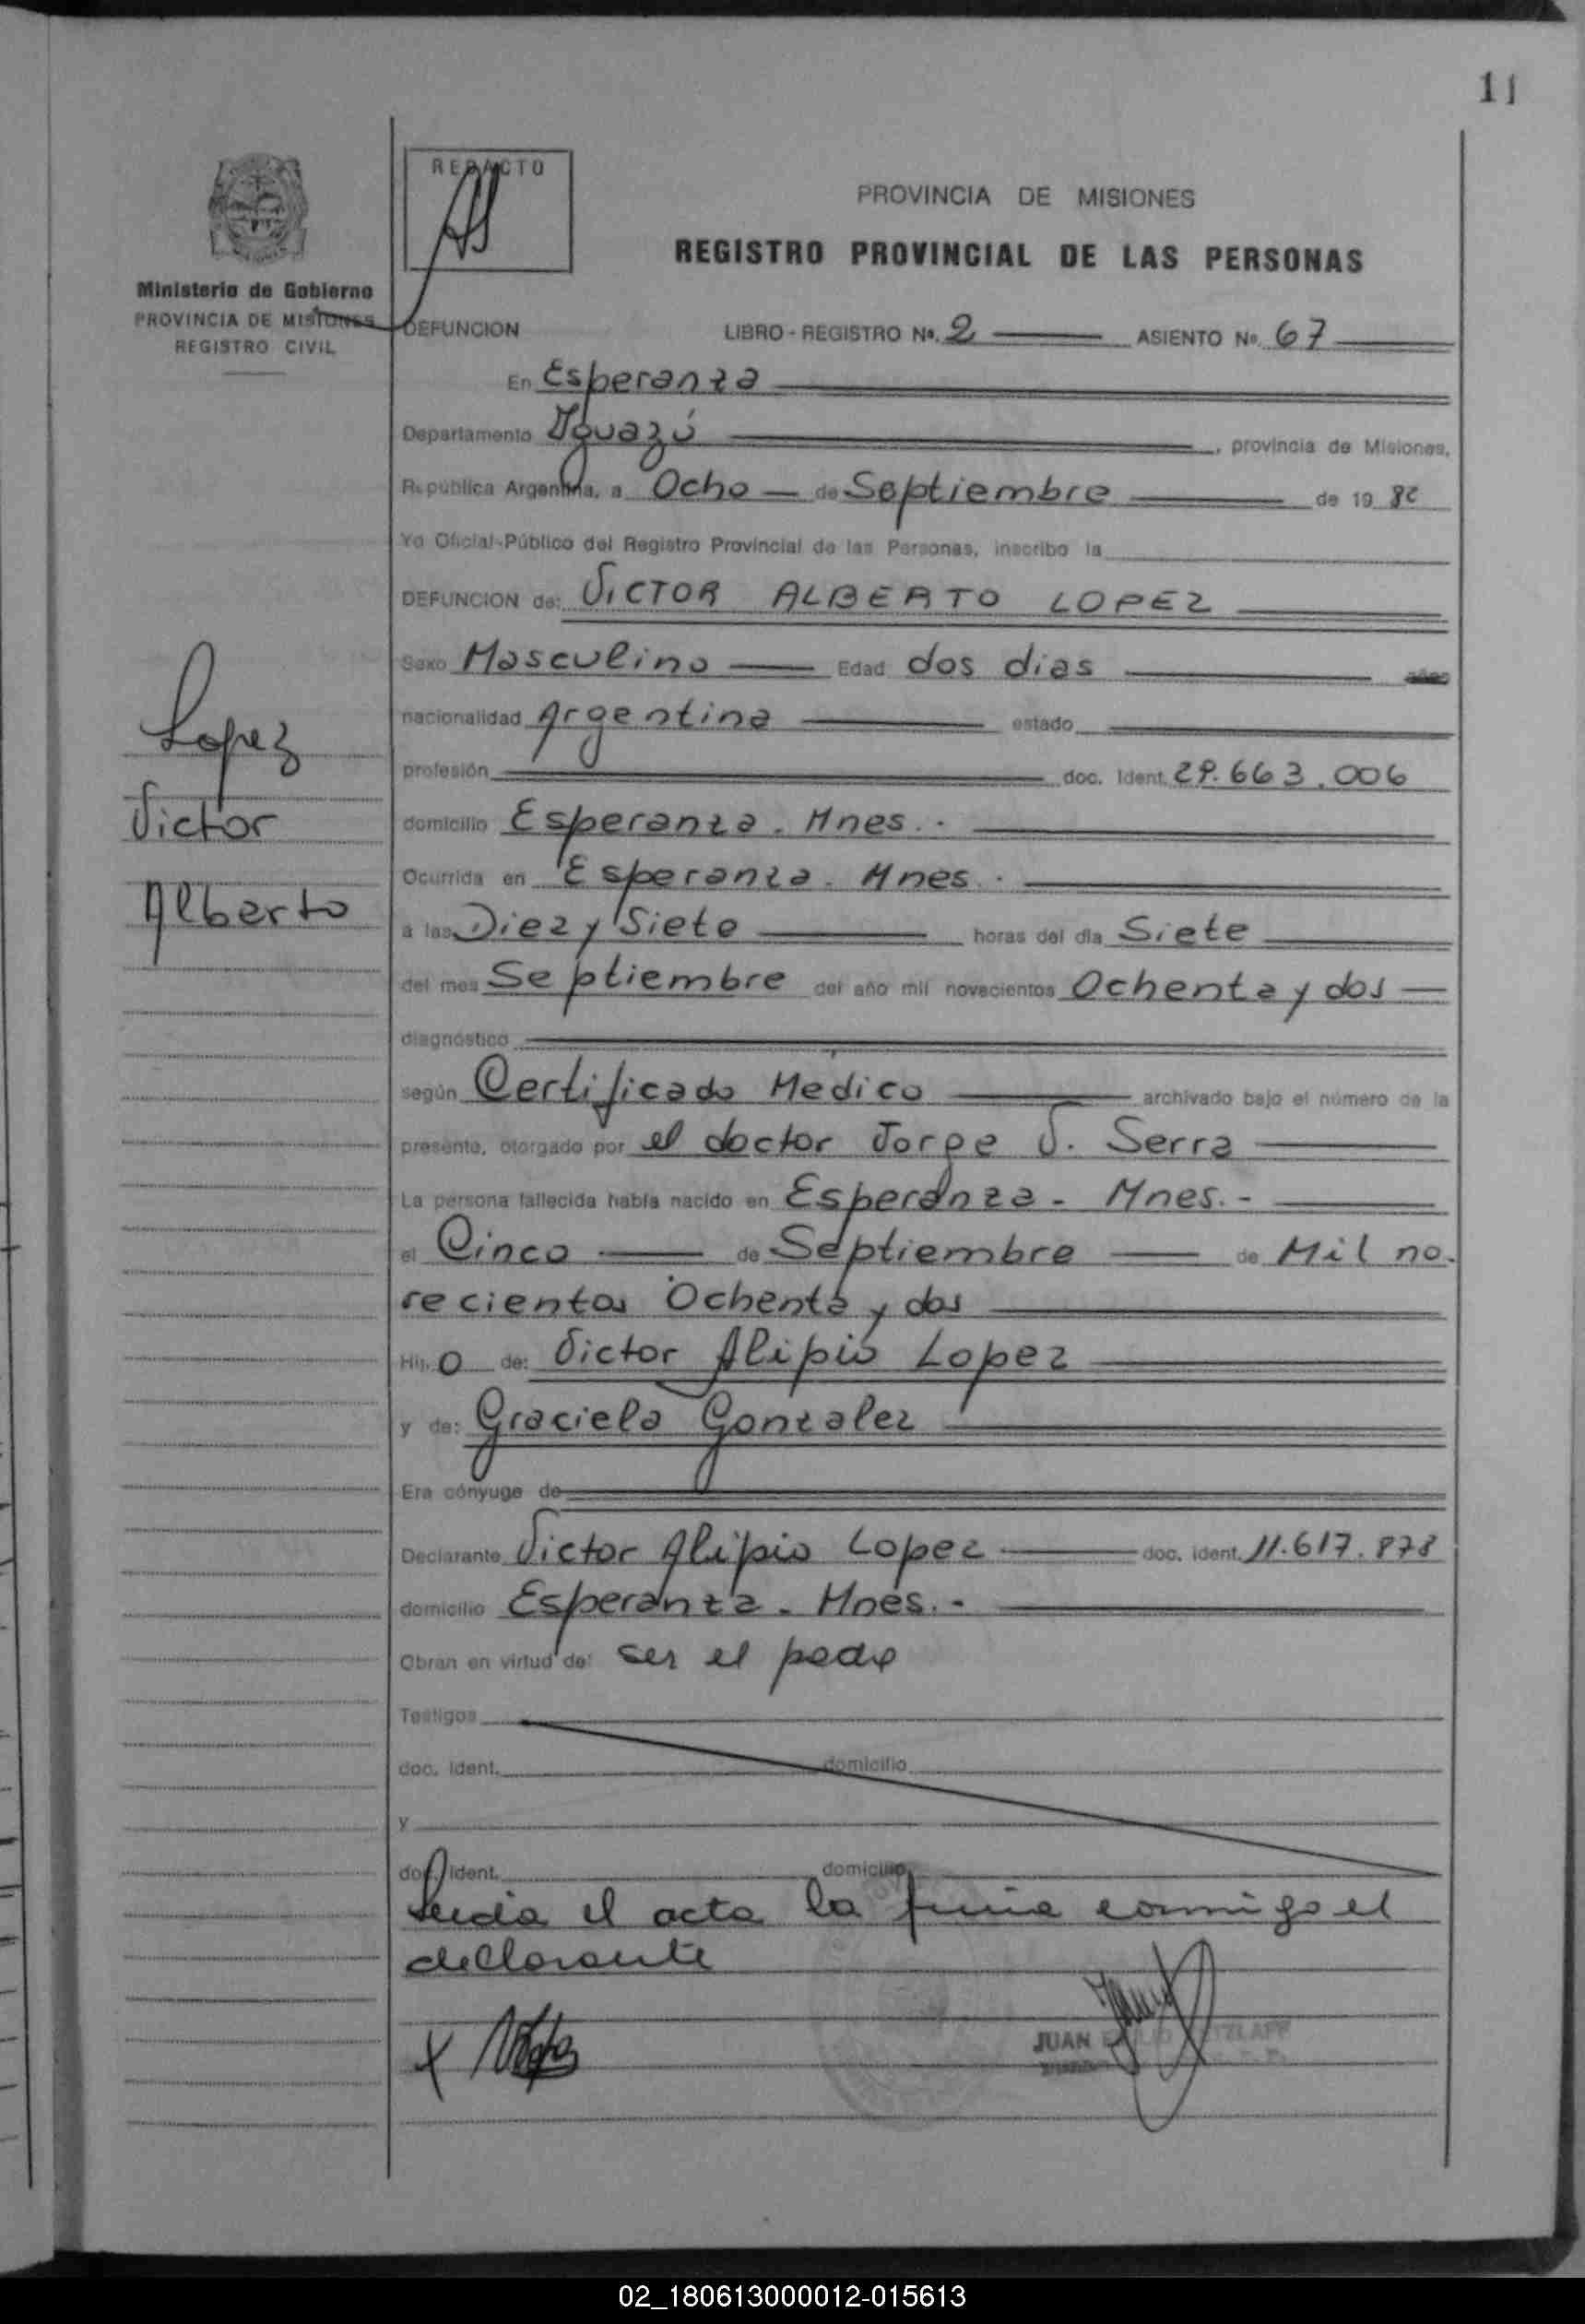 11
REDACTO
PROVINCIA DE MISIONES
REGISTRO PROVINCIAL DE LAS PERSONAS
Ministerio de Gobierno
PROVINCIA DE MISIONES
REGISTRO CIVIL
DEFUNCION LIBRO - REGISTRO Nº. 2 ASIENTO Nº. 67
En Esperanza
Departamento Iguazú, provincia de Misiones,
República Argentina, a Ocho de Septiembre de 19 82
Yo Oficial-Público del Registro Provincial de las Personas, inscribo la
DEFUNCION de: VICTOR ALBERTO LOPEZ
Sexo Masculino Edad dos dias años
nacionalidad Argentina estado
profesión doc. Ident. 29.663.006
domicilio Esperanza. Mnes. -
Ocurrida en Esperanza. Mnes. -
a las Diez y Siete horas del día Siete
del mes Septiembre del año mil novecientos Ochenta y dos
diagnóstico
según Certificado Medico archivado bajo el número de la
presente, otorgado por el doctor Jorge V. Serra
La persona fallecida había nacido en Esperanza - Mnes. -
el Cinco de Septiembre de Mil no.
vecientos Ochenta y dos
Hij o de: Victor Alipio Lopez
y de: Graciela Gonzalez
Era cónyuge de
Declarante Victor Alipio Lopez doc. ident. 11.617.878
domicilio Esperanza. Mnes. -
Obran en virtud de: ser el padre
Testigos
doc. ident. domicilio
y
doc. ident. domicilio
Leida el acta la firma conmigo el
decllarante
X
JUAN
Lopez
Victor
Alberto
02_180613000012-015613